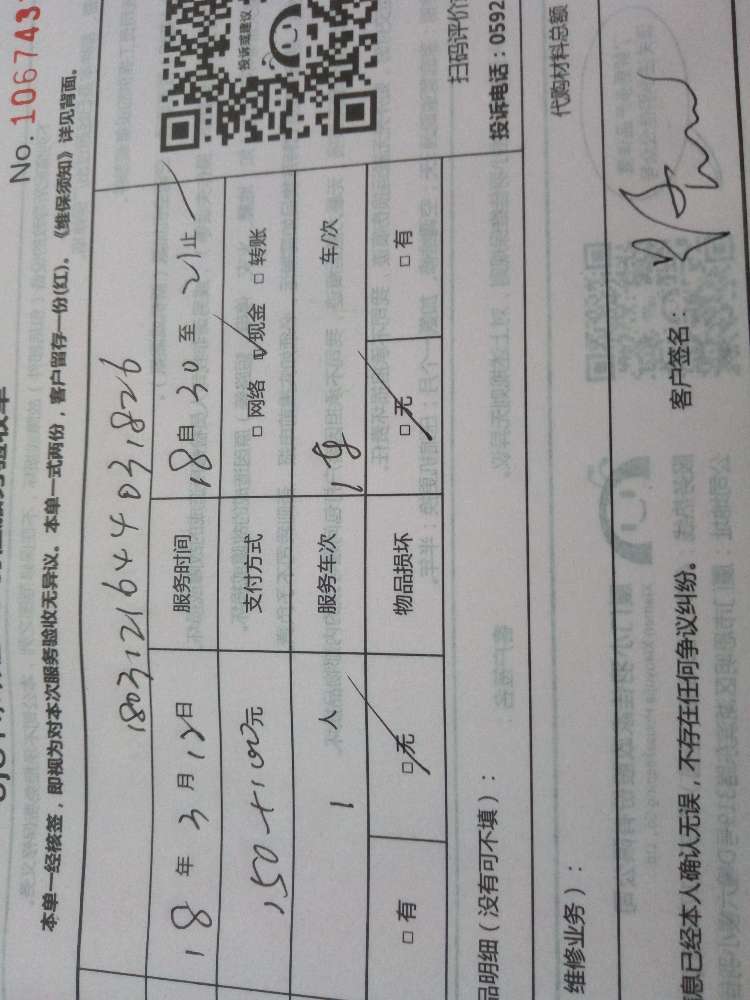 No. 106743
验收单
本单一经核签，即视为对本次服务验收无异议。本单一式两份，客户留存一份(红)。《维保须知》详见背面。
180312164403 1826
18 年 3 月 12 日 服务时间 18 自 30 至 21 止
150+100元 支付方式 □ 网络 ☑ 现金 □ 转账
1 人 服务车次 1 车/次
□ 有 ☑ 无 物品损坏 ☑ 无 □ 有
投诉或建议
扫码评价
投诉电话：0592
品明细（没有可不填）：
代购材料总额
维修业务）：
息已经本人确认无误，不存在任何争议纠纷。 客户签名：